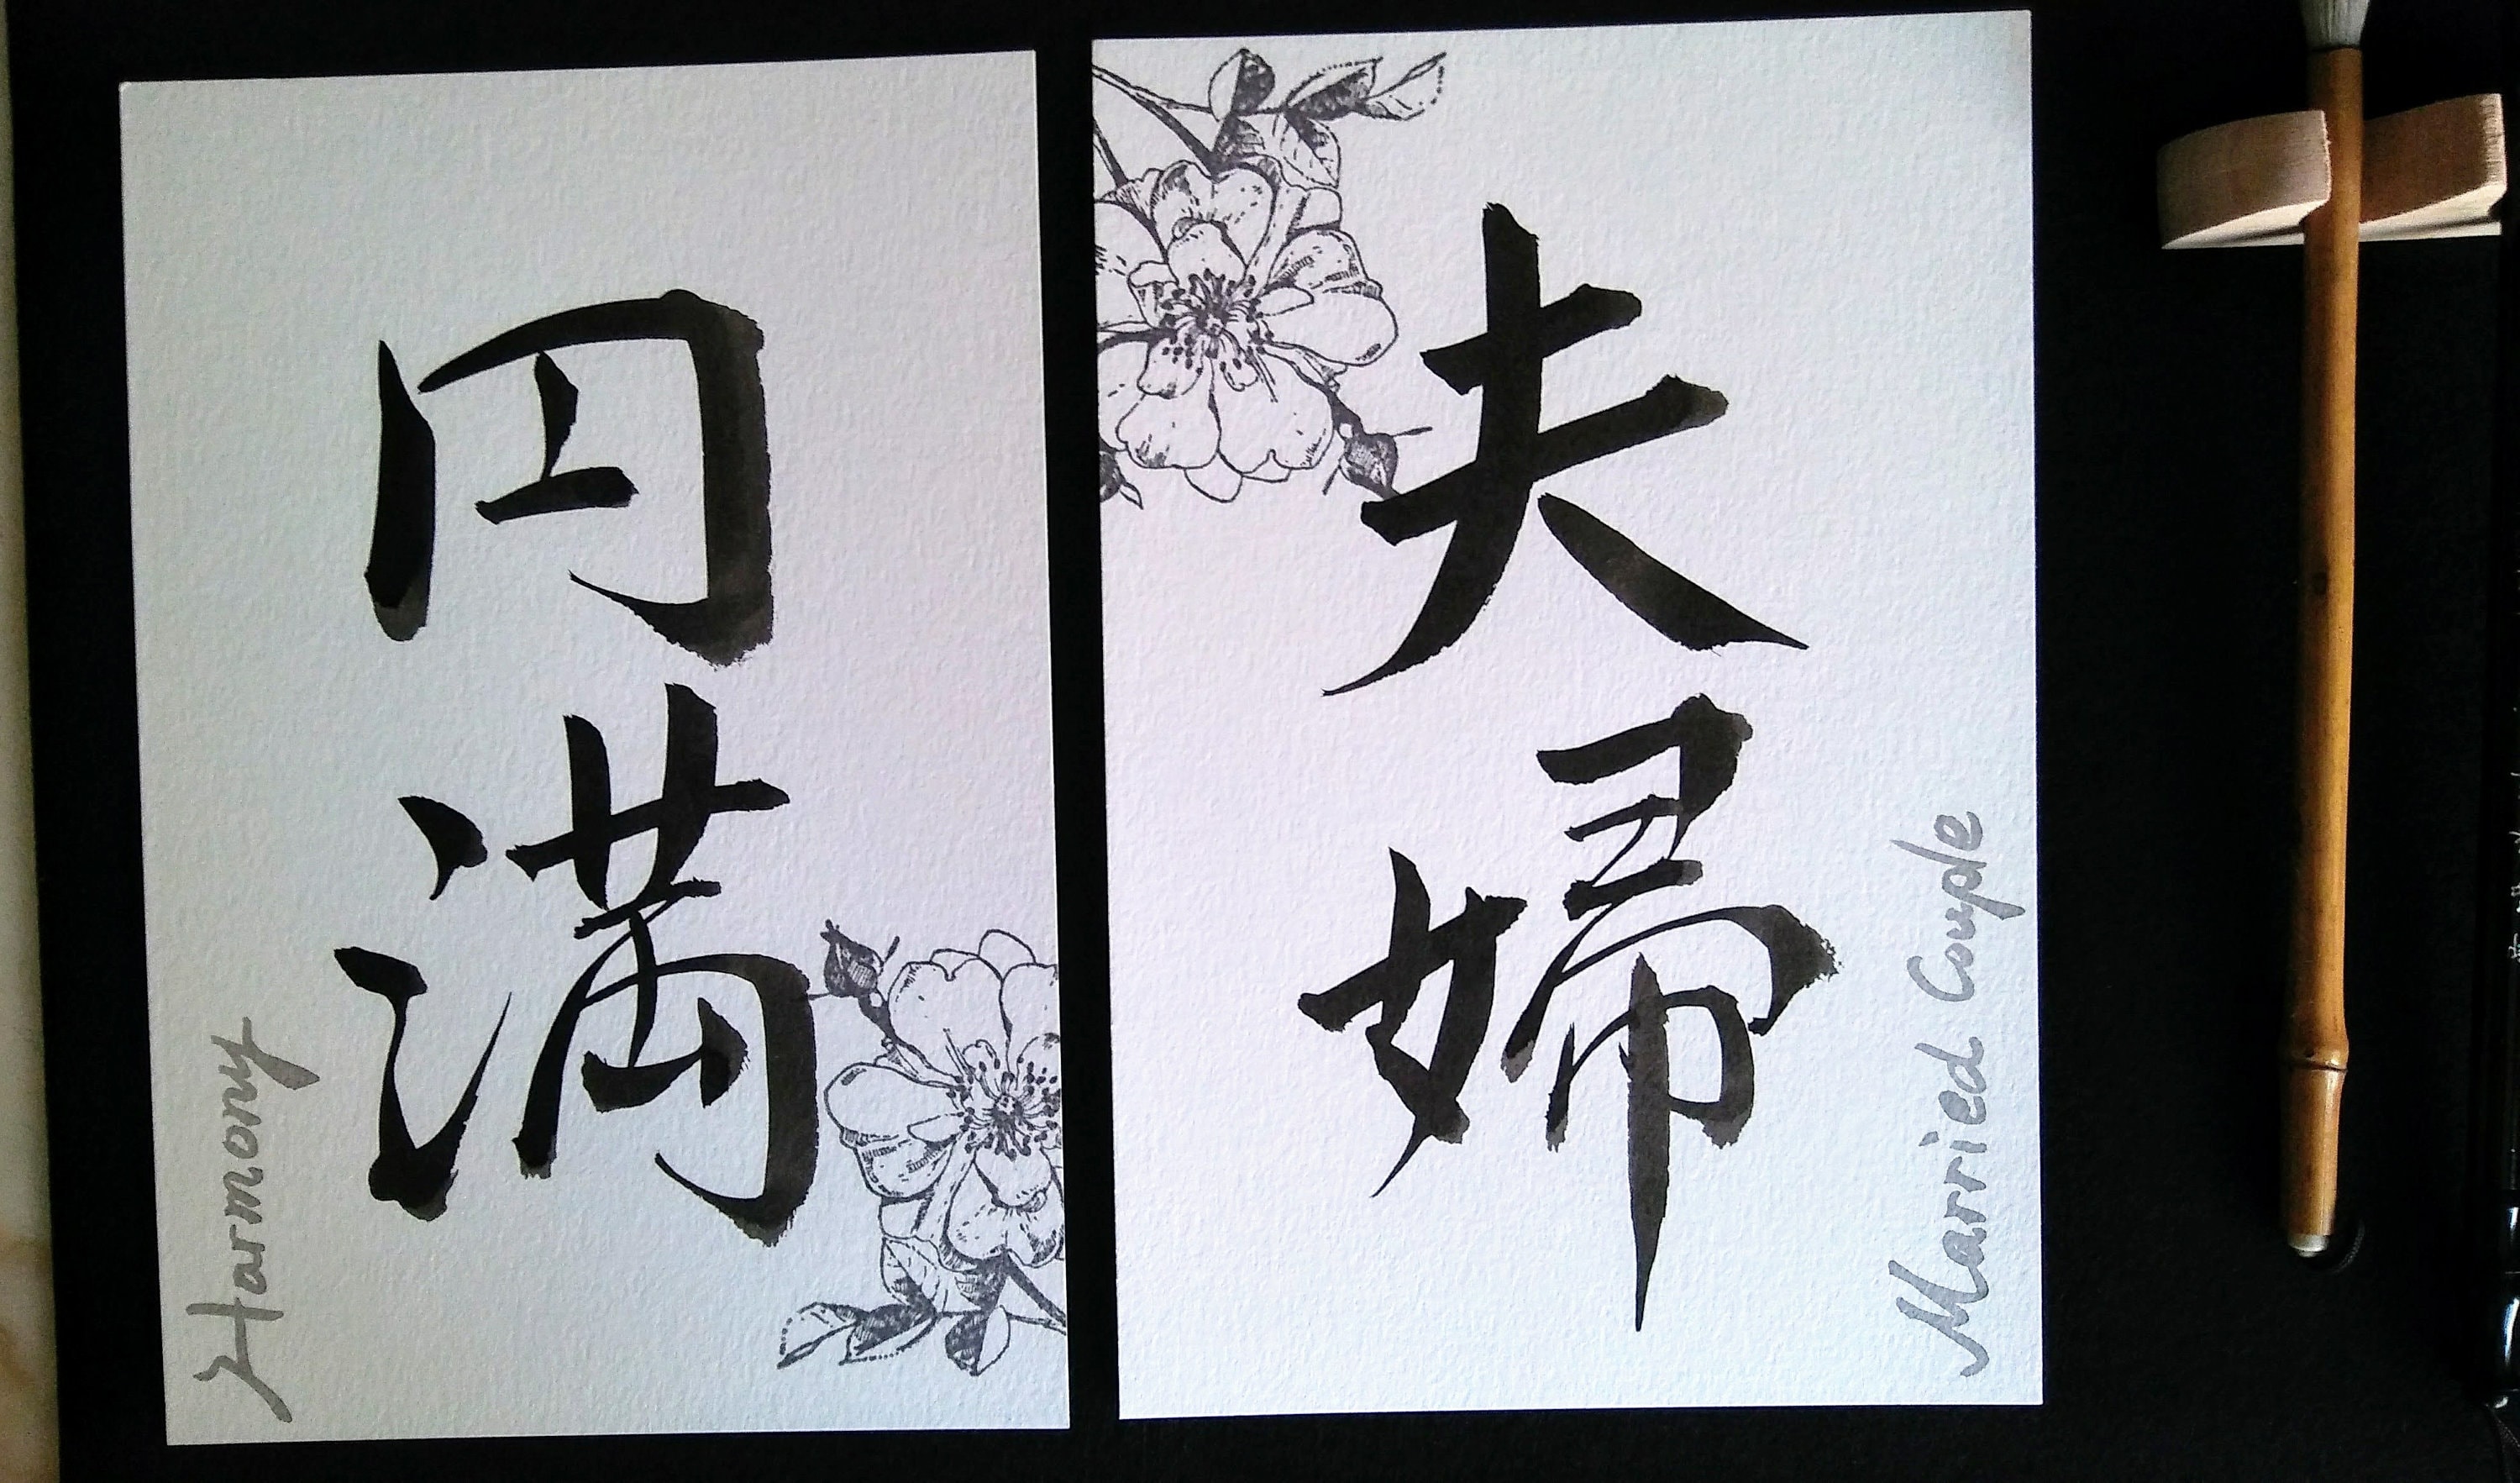 夫婦
Married Couple
円満
Harmony